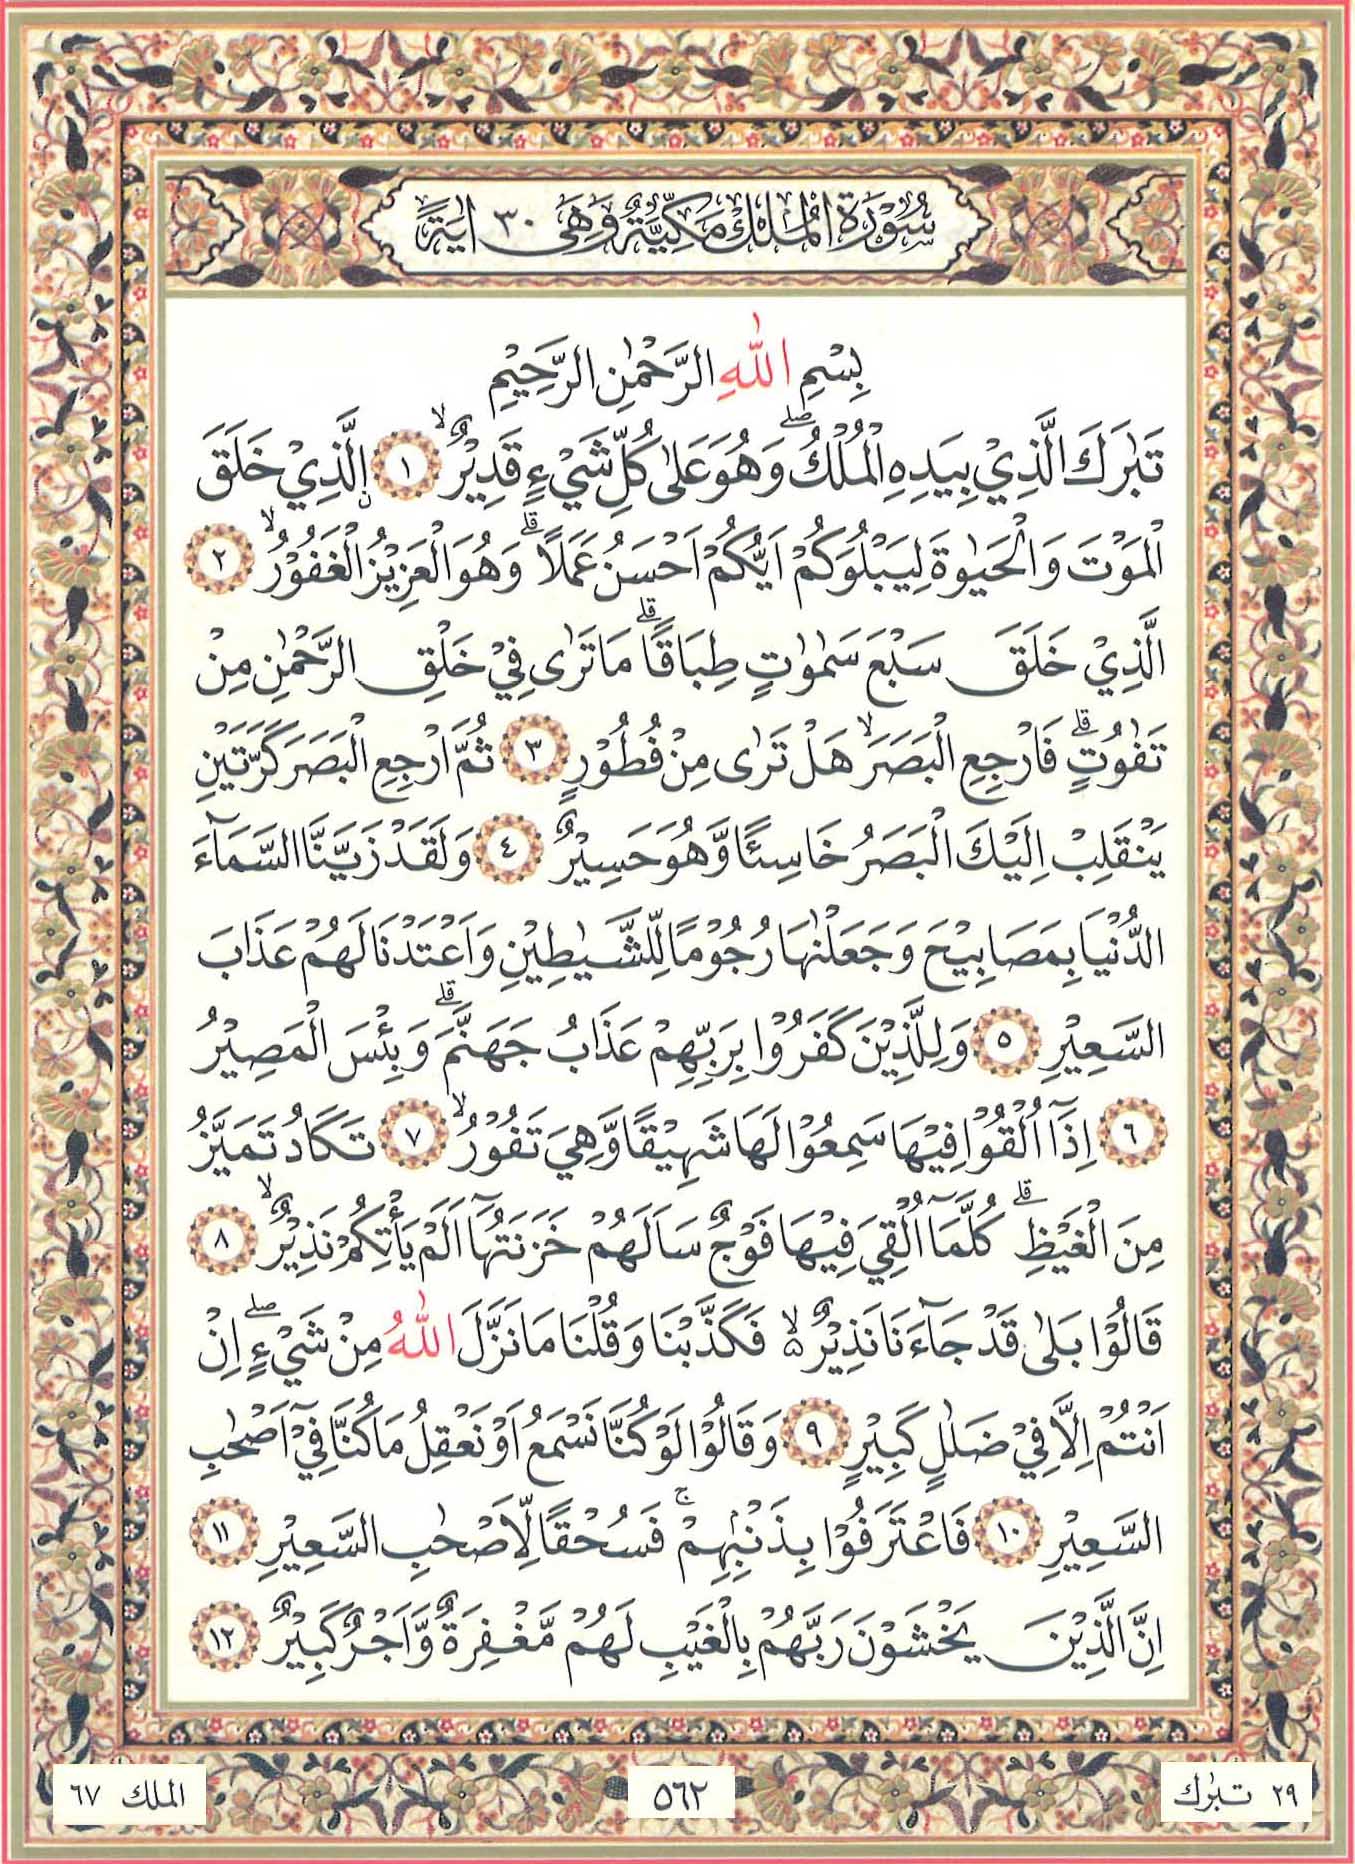 سُوْرَةُ الْمُلْكِ مَكِّيَّةٌ وَهِيَ ٣٠ اٰيَةً
بِسْمِ اللّٰهِ الرَّحْمٰنِ الرَّحِيْمِ
تَبٰرَكَ الَّذِيْ بِيَدِهِ الْمُلْكُۖ وَهُوَ عَلٰى كُلِّ شَيْءٍ قَدِيْرٌۙ ١ اۨلَّذِيْ خَلَقَ
الْمَوْتَ وَالْحَيٰوةَ لِيَبْلُوَكُمْ اَيُّكُمْ اَحْسَنُ عَمَلًاۗ وَهُوَ الْعَزِيْزُ الْغَفُوْرُۙ ٢
الَّذِيْ خَلَقَ سَبْعَ سَمٰوٰتٍ طِبَاقًاۗ مَا تَرٰى فِيْ خَلْقِ الرَّحْمٰنِ مِنْ
تَفٰوُتٍۗ فَارْجِعِ الْبَصَرَۙ هَلْ تَرٰى مِنْ فُطُوْرٍ ٣ ثُمَّ ارْجِعِ الْبَصَرَ كَرَّتَيْنِ
يَنْقَلِبْ اِلَيْكَ الْبَصَرُ خَاسِئًا وَّهُوَ حَسِيْرٌ ٤ وَلَقَدْ زَيَّنَّا السَّمَاۤءَ
الدُّنْيَا بِمَصَابِيْحَ وَجَعَلْنٰهَا رُجُوْمًا لِّلشَّيٰطِيْنِ وَاَعْتَدْنَا لَهُمْ عَذَابَ
السَّعِيْرِ ٥ وَلِلَّذِيْنَ كَفَرُوْا بِرَبِّهِمْ عَذَابُ جَهَنَّمَۗ وَبِئْسَ الْمَصِيْرُ
٦ اِذَآ اُلْقُوْا فِيْهَا سَمِعُوْا لَهَا شَهِيْقًا وَّهِيَ تَفُوْرُۙ ٧ تَكَادُ تَمَيَّزُ
مِنَ الْغَيْظِۗ كُلَّمَآ اُلْقِيَ فِيْهَا فَوْجٌ سَاَلَهُمْ خَزَنَتُهَآ اَلَمْ يَأْتِكُمْ نَذِيْرٌۙ ٨
قَالُوْا بَلٰى قَدْ جَاۤءَنَا نَذِيْرٌ ەۙ فَكَذَّبْنَا وَقُلْنَا مَا نَزَّلَ اللّٰهُ مِنْ شَيْءٍۖ اِنْ
اَنْتُمْ اِلَّا فِيْ ضَلٰلٍ كَبِيْرٍ ٩ وَقَالُوْا لَوْ كُنَّا نَسْمَعُ اَوْ نَعْقِلُ مَا كُنَّا فِيْٓ اَصْحٰبِ
السَّعِيْرِ ١٠ فَاعْتَرَفُوْا بِذَنْۢبِهِمْۚ فَسُحْقًا لِّاَصْحٰبِ السَّعِيْرِ ١١
اِنَّ الَّذِيْنَ يَخْشَوْنَ رَبَّهُمْ بِالْغَيْبِ لَهُمْ مَّغْفِرَةٌ وَّاَجْرٌ كَبِيْرٌ ١٢
٢٩ تبٰرك ٥٦٢ الملك ٦٧